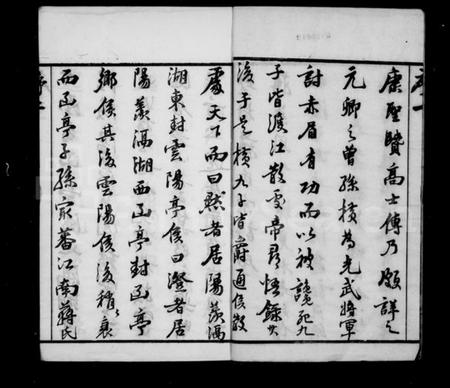 序一
康聖賢高士傳乃頗詳之
元卿之曾孫橫為光武將軍
討赤眉有功而以被讒死九
子皆渡江散處帝尋悟錄其
後于是橫九子皆爵通侯散
處天下而曰默者居陽羨滆
湖東封雲陽亭侯曰澄者居
陽羨滆湖西封函亭
鄉侯其後雲陽侯後稍〻衰
而函亭子孫最蕃江南蔣氏
序二